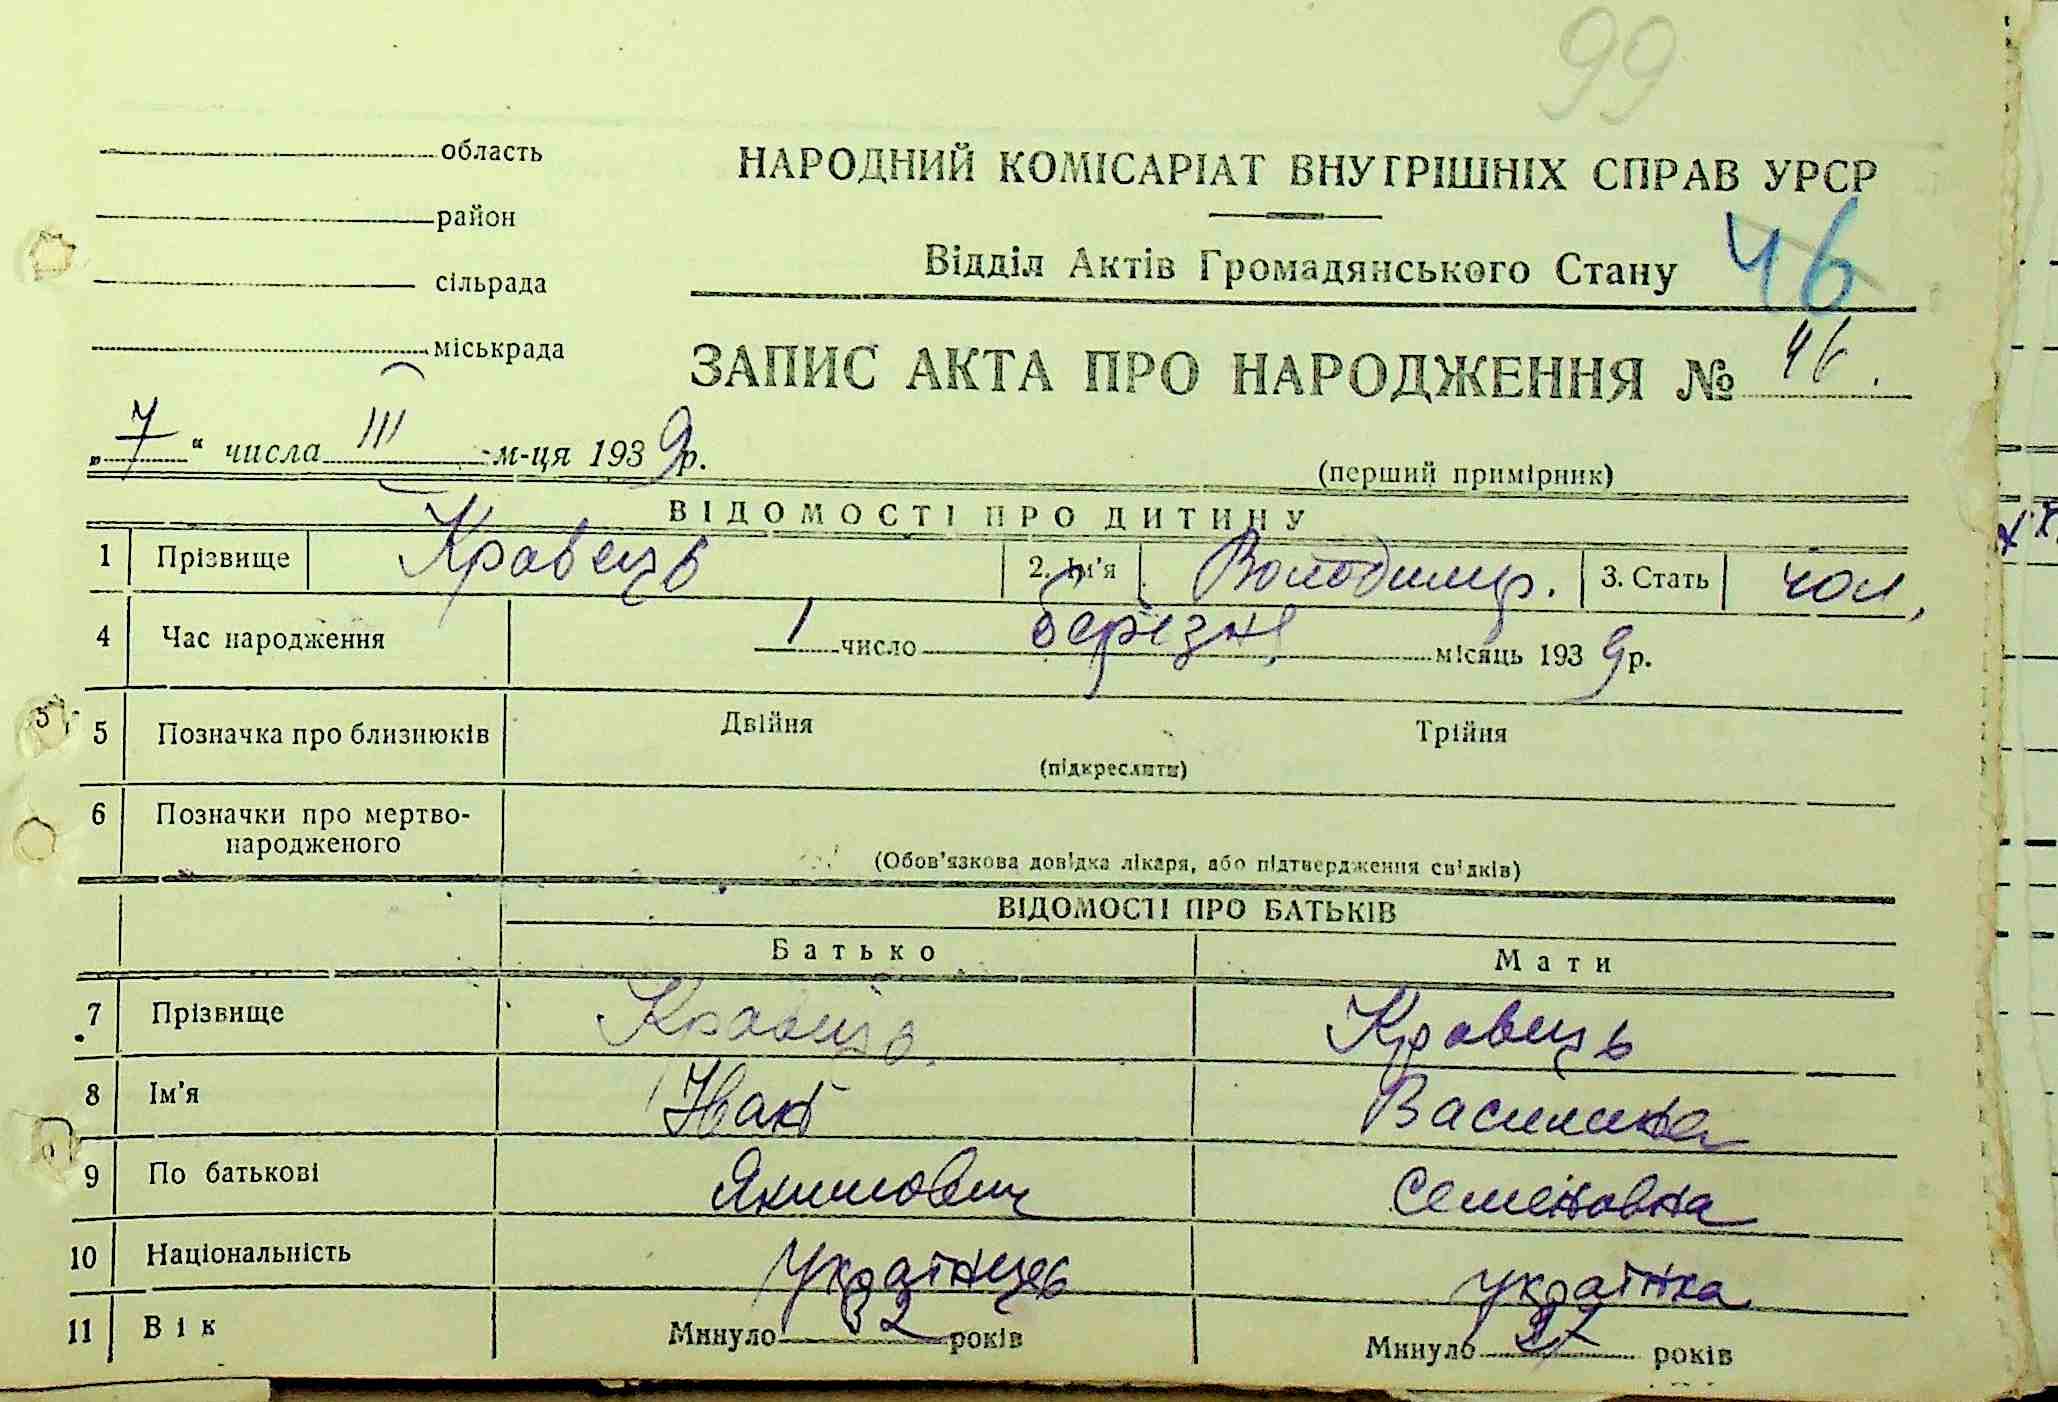 99
область
район
сільрада
міськрада
НАРОДНИЙ КОМІСАРІАТ ВНУТРІШНІХ СПРАВ УРСР
Відділ Актів Громадянського Стану
46
ЗАПИС АКТА ПРО НАРОДЖЕННЯ № 46.
„7“ числа III м-ця 1939 р.
(перший примірник)
ВІДОМОСТІ ПРО ДИТИНУ
1 Прізвище Кравець 2. Ім’я Володимир. 3. Стать чол.
4 Час народження 1 число березня місяць 1939 р.
5 Позначка про близнюків Двійня Трійня
(підкреслити)
6 Позначки про мертво-
народженого
(Обов’язкова довідка лікаря, або підтвердження свідків)
ВІДОМОСТІ ПРО БАТЬКІВ
Батько Мати
7 Прізвище Кравець Кравець
8 Ім’я Іван Василина
9 По батькові Якимович Семеновна
10 Національність українець українка
11 Вік Минуло 32 років Минуло 27 років